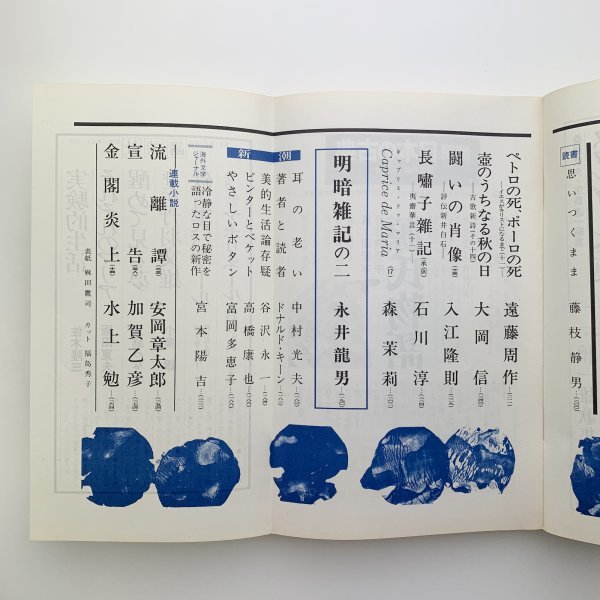 読書
思いつくまま 藤枝静男
ペトロの死、ポーロの死 遠藤周作
壺のうちなる秋の日 大岡信
―古歌新詩(その十四)―
闘いの肖像 入江隆則
評伝新井白石
長嘯子雑記(承前) 石川淳
―夷齋華言(十二)―
キャプリス・ド・マリア
Caprice de Maria 森茉莉
明暗雑記の二 永井龍男
新潮
耳の老い 中村光夫
著者と読者 ドナルド・キーン
美的生活論存疑 谷沢永一
ピンターとベケット 高橋康也
やさしいボタン 富岡多恵子
海外文学ジャーナル
冷静な目で秘密を語ったロスの新作 宮本陽吉
連載小説
流離譚 安岡章太郎
宣告 加賀乙彦
金閣炎上 水上勉
表紙 麻田鷹司 カット 福島秀子